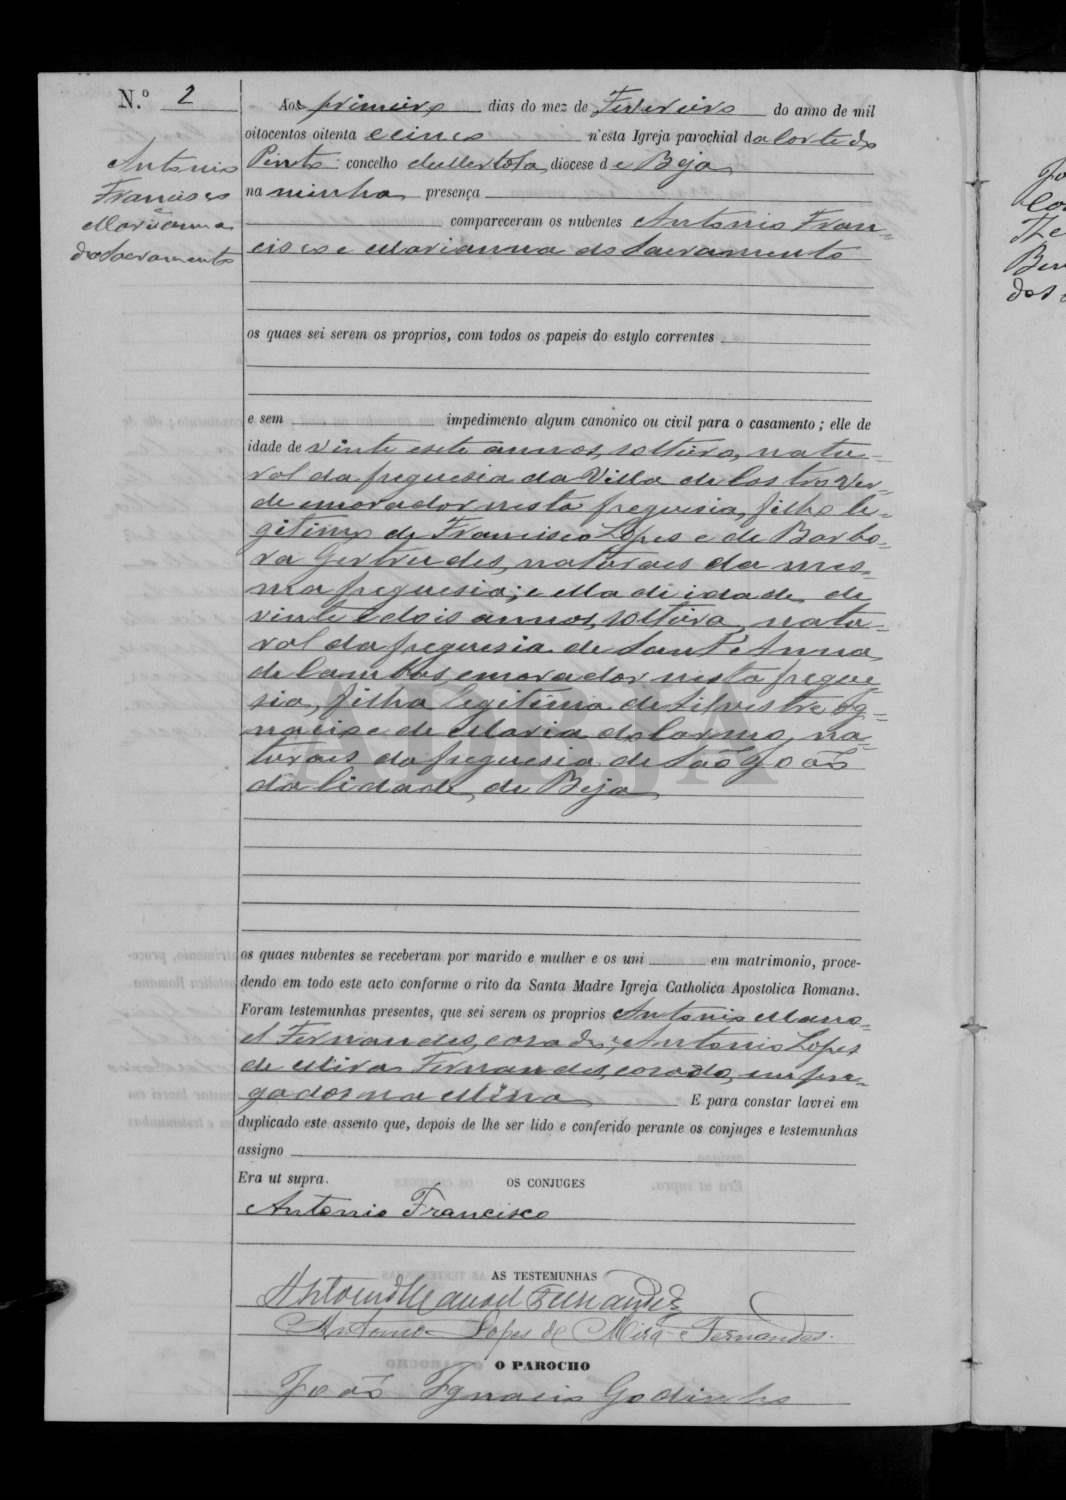 N.º 2
Antonio
Francisco
e
Marianna
do Sacramento
Aos primeiro dias do mez de Fevereiro do anno de mil
oitocentos oitenta e cinco n'esta Igreja parochial da Corte do
Pinto concelho de Mertola, diocese de Beja
na minha presença
compareceram os nubentes Antonio Fran-
cisco e Marianna do Sacramento
os quaes sei serem os proprios, com todos os papeis do estylo correntes
e sem impedimento algum canonico ou civil para o casamento; elle de
idade de vinte e sete annos, solteiro, natu-
ral da freguesia da Villa de Castro Ver-
de e morador nesta freguesia, filho le-
gitimo de Francisco Lopes e de Barba-
ra Gertrudes, naturaes da mes-
ma freguesia; e ella de idade de
vinte e dois annos, solteira, natu-
ral da freguesia de Sant'Anna
de Cambas e morador nesta fregue-
sia, filha legitima de Silvestre Ig-
nacio e de Maria do Carmo, na-
turaes da freguesia de São João
da Cidade de Beja
os quaes nubentes se receberam por marido e mulher e os uni em matrimonio, proce-
dendo em todo este acto conforme o rito da Santa Madre Igreja Catholica Apostolica Romana.
Foram testemunhas presentes, que sei serem os proprios Antonio Mano-
el Fernandes, casado; e Antonio Lopes
de Mira Fernandes, casado, empre-
gados na Mina E para constar lavrei em
duplicado este assento que, depois de lhe ser lido e conferido perante os conjuges e testemunhas
assigno
Era ut supra.
OS CONJUGES
Antonio Francisco
AS TESTEMUNHAS
Antonio Manoel Fernandes
Antonio Lopes de Mira Fernandes.
O PAROCHO
João Ignacio Godinho